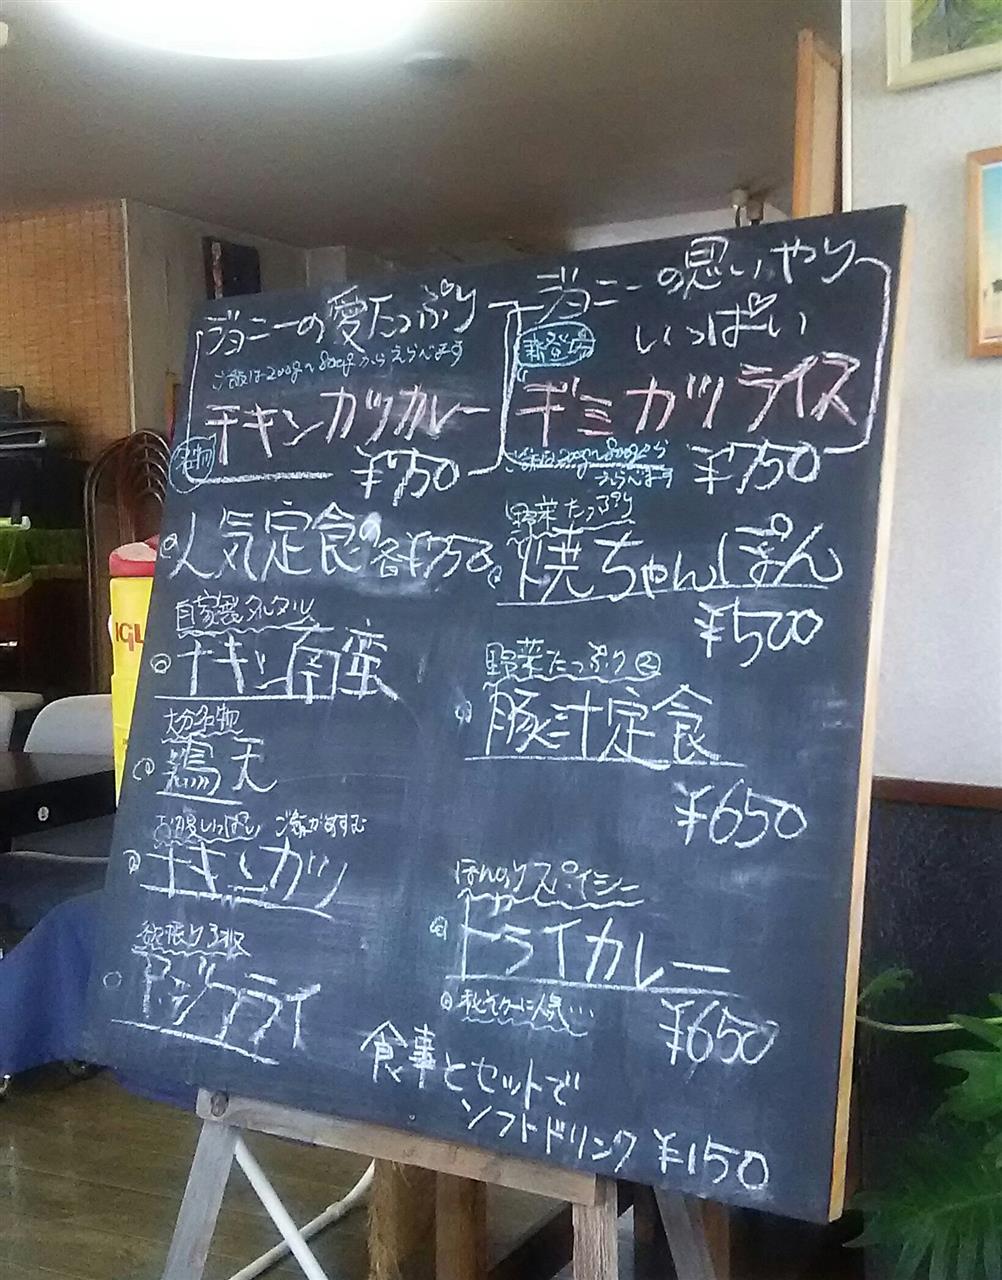 ジョニーの愛たっぷり
ご飯は200g〜800gからえらべます
チキンカツカレー
名物
¥750
ジョニーの思いやり
いっぱい
新登場
ギミカツライス
ご飯200g〜800gから
えらべます
¥750
人気定食の
各¥750
自家製タルタル
チキン南蛮
大分名物
鶏天
お腹いっぱい ご飯がすすむ
チキンカツ
数限り
野菜たっぷり
焼ちゃんぽん
¥500
野菜たっぷり②
豚汁定食
¥650
ほんのりスパイシー
ドライカレー
に人気…
¥650
食事とセットで
ソフトドリンク ¥150
IGL